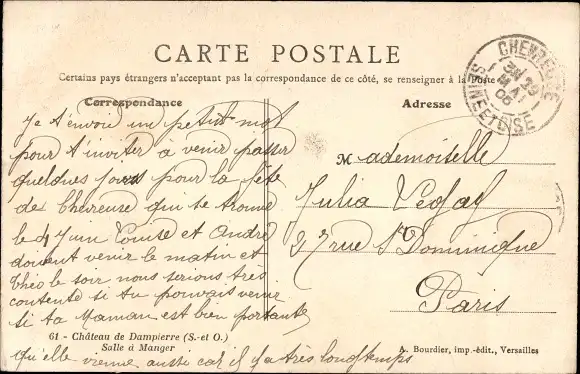 CARTE POSTALE
Certains pays étrangers n'acceptant pas la correspondance de ce côté, se renseigner à la Poste
Correspondance
Adresse
CHEVREUSE
29
MAI
05
SEINE-ET-OISE
Je t'envoie un petit mot
pour t'inviter à venir passer
quelques jours pour la fête
de Chevreuse qui se trouve
le 4 Juin Louise et André
doivent venir le matin et
Théo le soir nous serions tres
contente si tu pouvais venir
si ta Maman est bien portante
qu'elle vienne aussi car il y a très longtemps
Mademoiselle
Julia
27 rue St Dominique
Paris
61 - Château de Dampierre (S.-et O.)
Salle à Manger
A. Bourdier, imp.-édit., Versailles